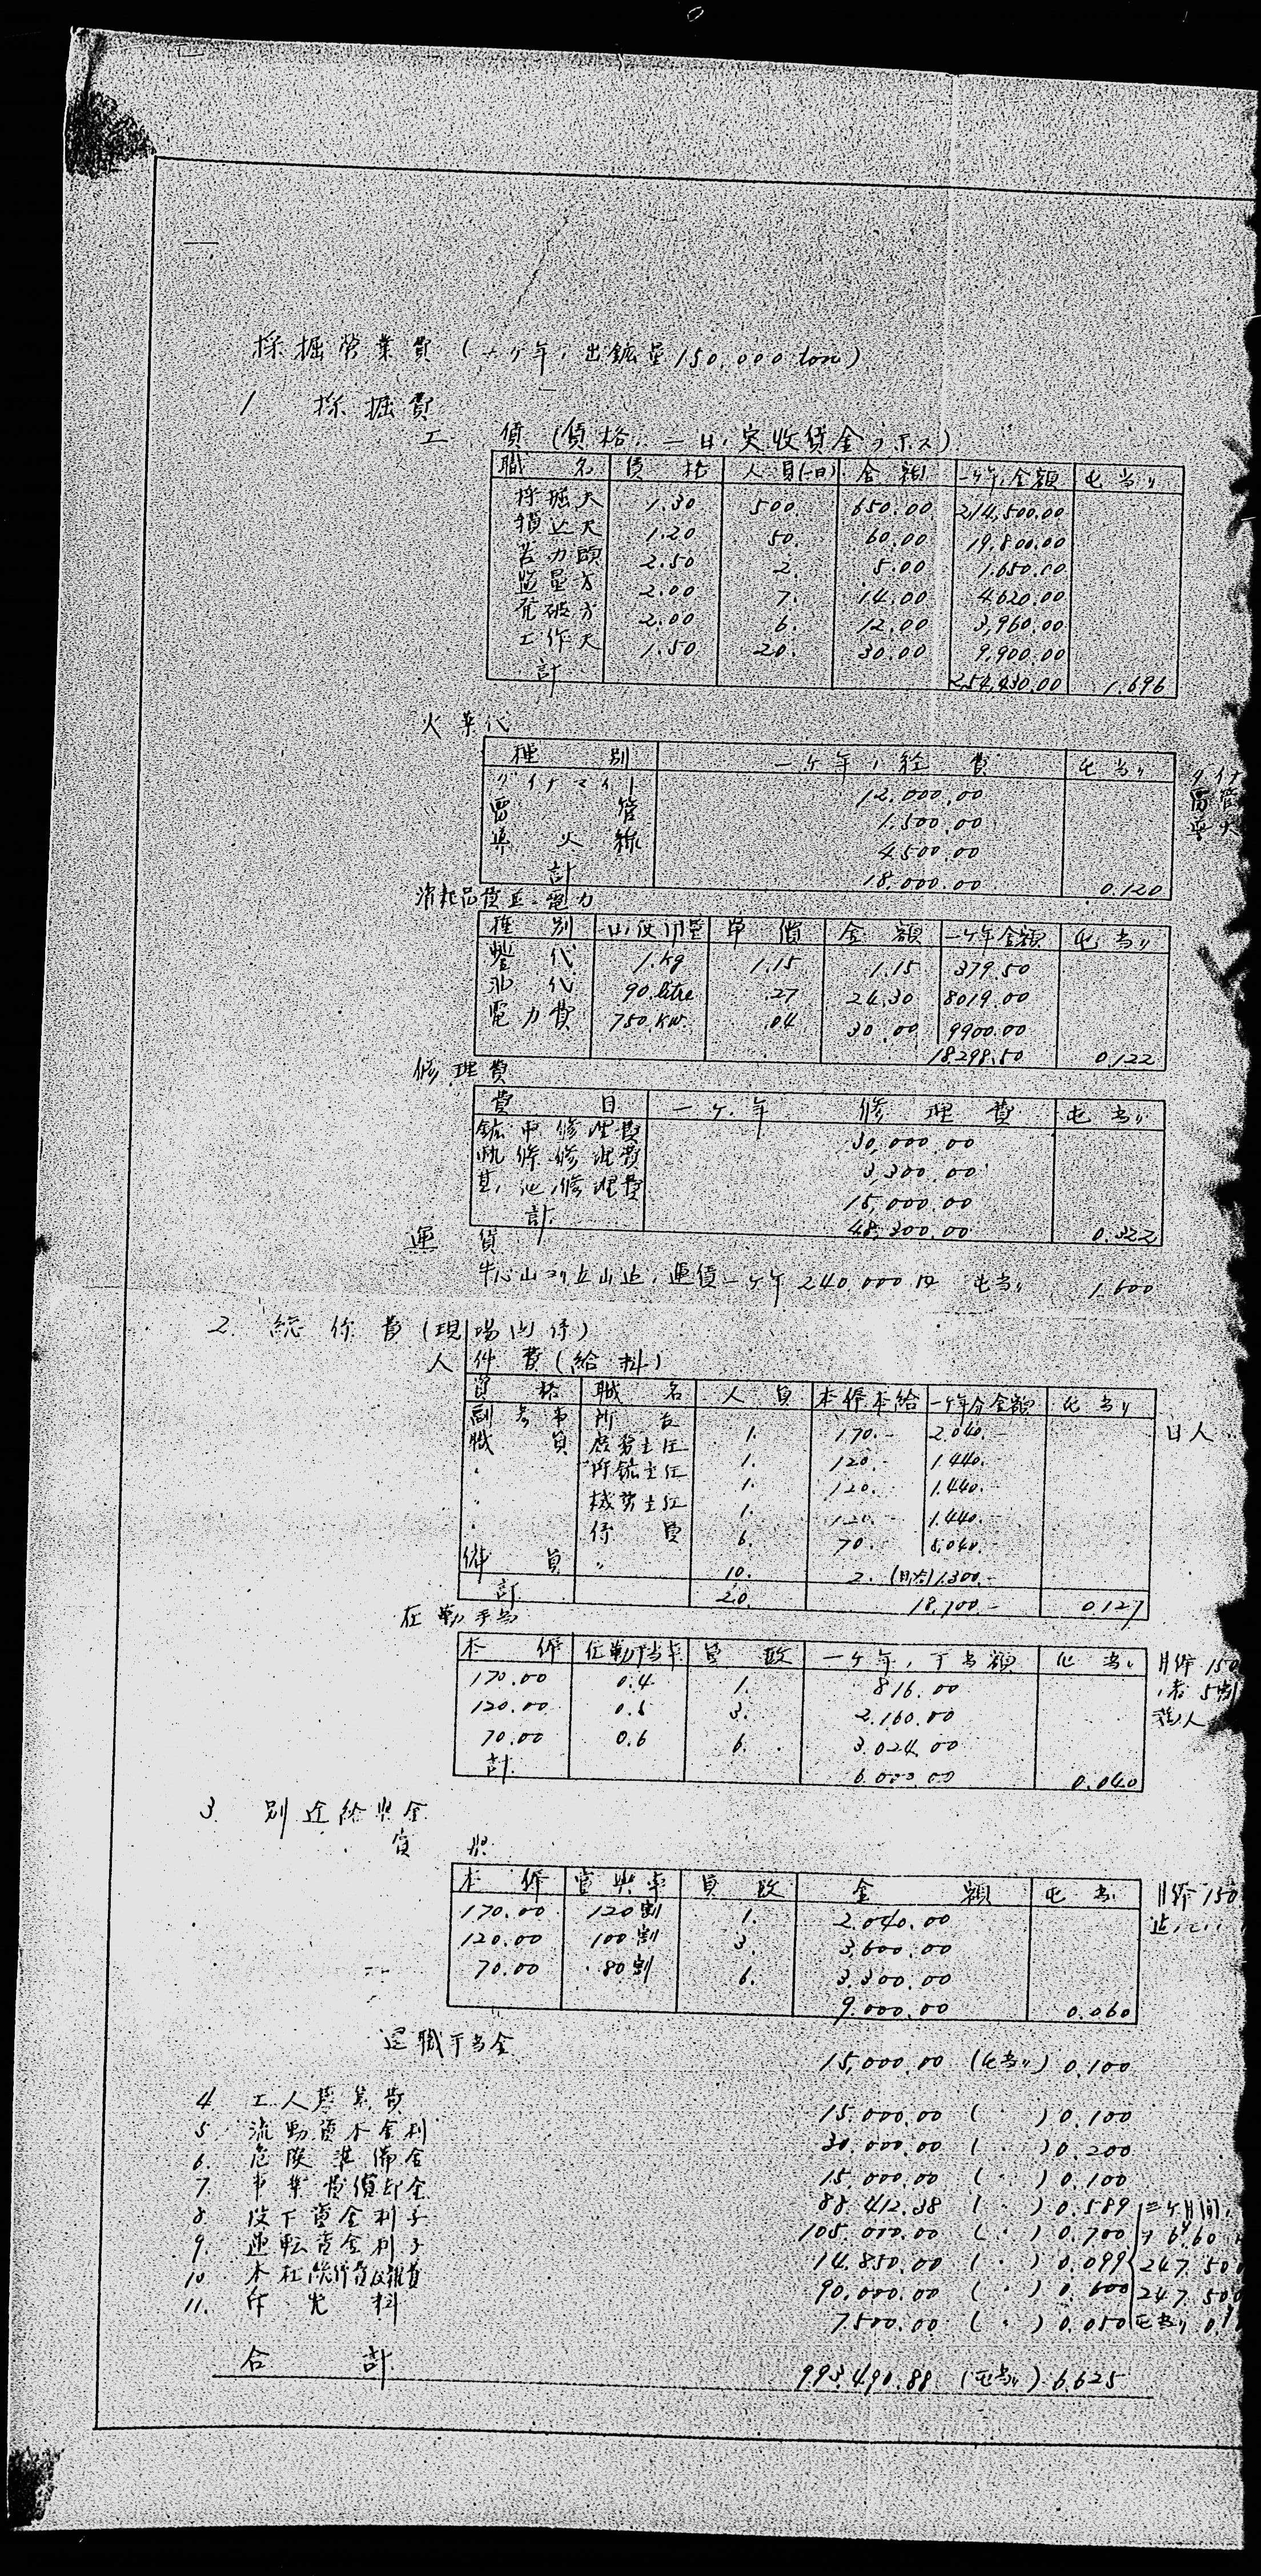 採掘営業費 (一ケ年, 出鉱量 150,000 ton)
1 採掘費
工 賃 (賃格, 一日, 実収賃金ヲ示ス)
職 名 賃 格 人員(一日) 金額 一ケ年金額 屯当リ
採掘夫 1.30 500. 650.00 214,500.00
1.20 50. 60.00 19,800.00
苦力頭 2.50 2. 5.00 1,650.00
2.00 7. 14.00 4620.00
発破方 2.00 6. 12.00 3,960.00
工作夫 1.50 20. 30.00 9,900.00
計 254,430.00 1.696
火薬代
種 別 一ケ年, 経費 屯当リ
ダイナマイト 12,000.00
雷 管 1,500.00
導火線 4,500.00
計 18,000.00 0.120
消耗品費並 電力
種 別 一日,使用量 単 価 金 額 一ケ年金額 屯当リ
代 1.kg 1.15 1.15 379.50
油 代 90.litre .27 24.30 8019.00
電力費 750.KW. .04 30.00 9900.00
18,298.50 0.122
修理費
費 目 一ケ年 修理費 屯当リ
鉱車修理費 30,000.00
軌条修理費 3,300.00
其,他,修理費 15,000.00
計 48,300.00 0.322
運 賃
運賃一ケ年 240,000円 屯当リ 1.600
2. 総係費 (現場関係)
人件費 (給料)
資 格 職 名 人 員 本俸本給 一ケ年分金額 屯当リ
副参事 所 長 1. 170.- 2,040.-
職 員 庶務主任 1. 120.- 1,440.-
〃 採鉱主任 1. 120.- 1,440.-
〃 機械主任 1. 120.- 1,440.-
〃 係 員 6. 70.- 5,040.-
傭 員 〃 10. 2. (日給)
計 20. 0.127
日人
在勤手当
本 俸 在勤手当率 員 数 一ケ年, 手当額 屯当リ
170.00 0.4 1. 816.00
120.00 0.5 3. 2,160.00
70.00 0.6 6. 3,024.00
計 6,000.00 0.040
月俸 150
3. 別途給与金
賞 与
本 俸 賞与率 員 数 金 額 屯当
170.00 120割 1. 2,040.00
120.00 100割 3. 3,600.00
70.00 80割 6. 3,300.00
9,000.00 0.060
月俸 150
退職手当金 15,000.00 (屯当リ) 0.100
4. 工人募集費 15,000.00 ( 〃 ) 0.100
5. 流動資本金利 30,000.00 ( 〃 ) 0.200
6. 危険準備金 15,000.00 ( 〃 ) 0.100
7. 事業費償却金 88,412.38 ( 〃 ) 0.589
8. 投下資金利子 105,000.00 ( 〃 ) 0.700
9. 運転資金利子 14,850.00 ( 〃 ) 0.099
10. 本社総係費及雑費 90,000.00 ( 〃 ) 0.600
11. 7,500.00 ( 〃 ) 0.050
三ケ月間
247,500
247,500
合 計 993,490.88 (屯当リ) 6.625